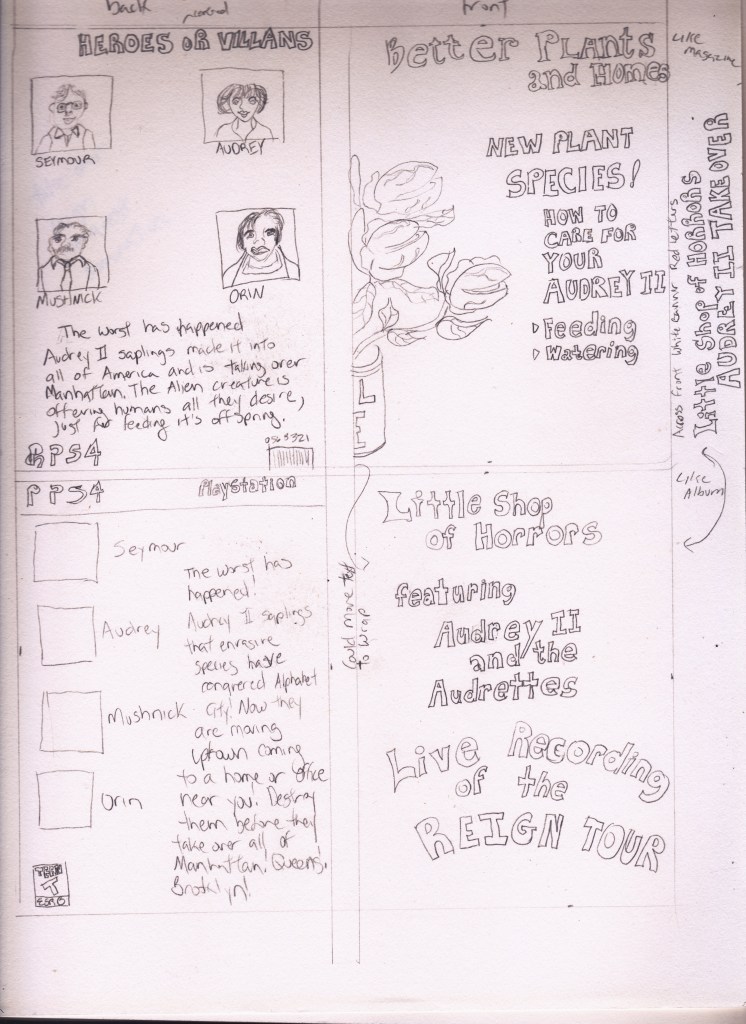 back
front
HEROES OR VILLANS
SEYMOUR
AUDREY
MUSHNICK
ORIN
The worst has happened
Audrey II saplings made it into
all of America and is taking over
Manhattan. The Alien creature is
offering humans all they desire,
just for feeding it's offspring.
PS4
Better Plants
and Homes
NEW PLANT
SPECIES!
HOW TO
CARE FOR
YOUR
AUDREY II
Feeding
Watering
LE
LIKE
MAGAZINE
Little Shop of HORRORS
AUDREY II TAKE OVER
Across Front White Banner Red letters
Like
Album
PS4
PlayStation
Seymour
Audrey
Mushnick
Orin
The worst has
happened!
Audrey II saplings
that envasive
species have
conqrered Alphabet
City! Now they
are moving
Uptown coming
to a home or office
near you. Destroy
them before they
take over all of
Manhattan, Queens,
Brooklyn!
TEEN
T
ESRB
Could move text
to wrap
Little Shop
of Horrors
featuring
Audrey II
and the
Audrettes
Live Recording
of the
REIGN TOUR